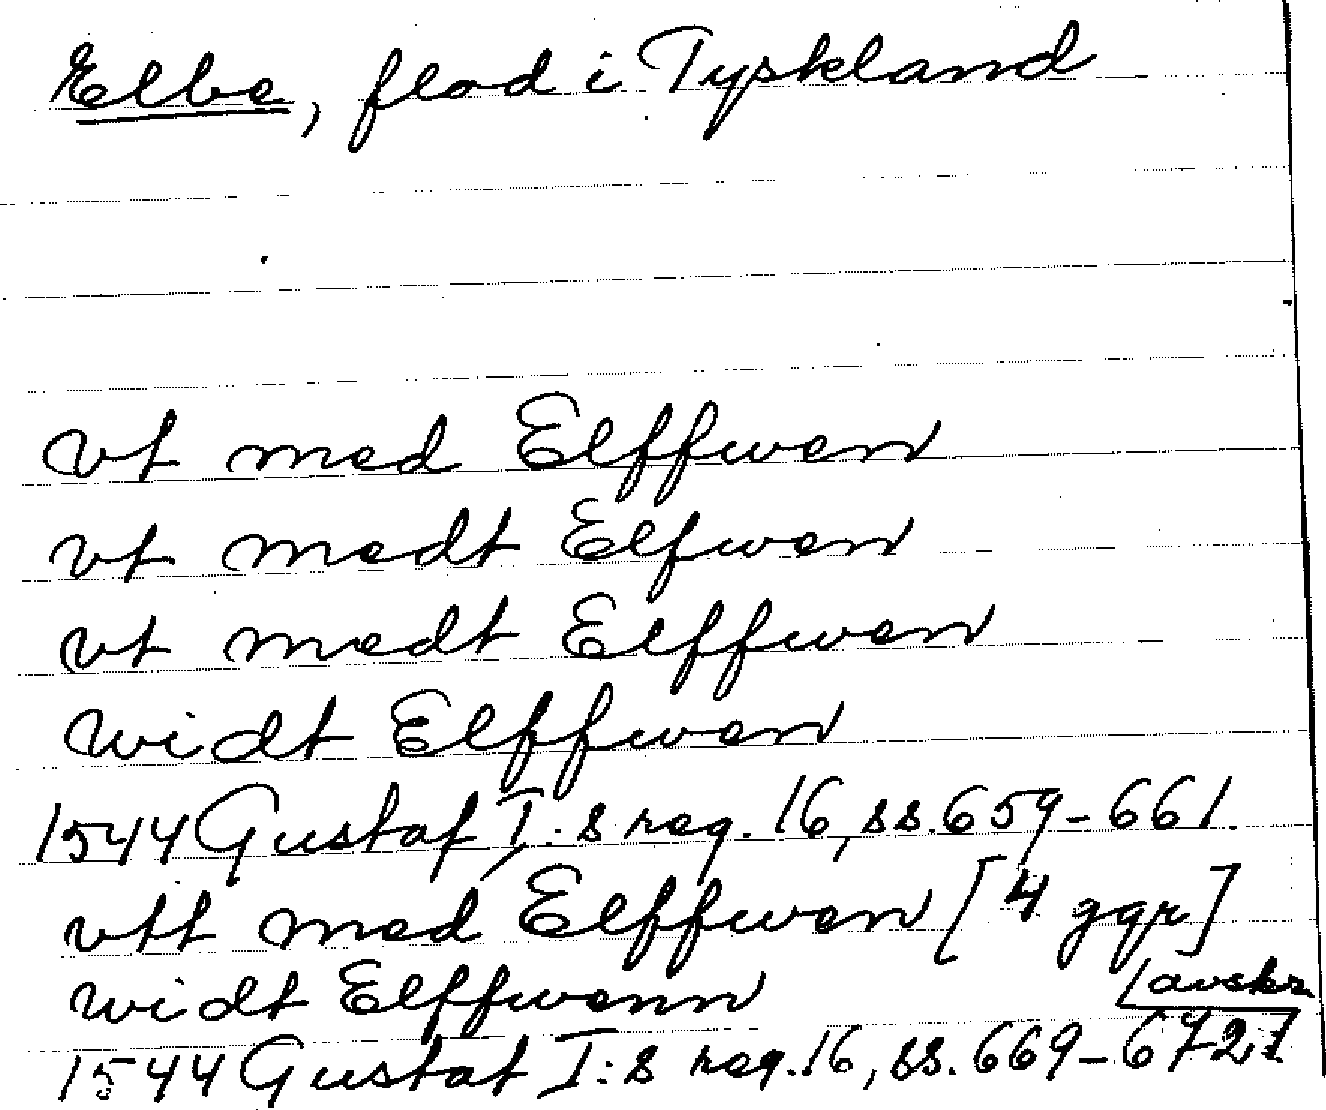 Elbe, flod i Tyskland
vt med Elffwen
vt medt Elfwen
vt medt Elffwen
widt Elffwen
1544 Gustaf I:s reg. 16, ss. 659-661.
vtt med Elffwen [4 ggr]
widt Elffwenn
avskr
1544 Gustaf I:s reg. 16, ss. 669-672